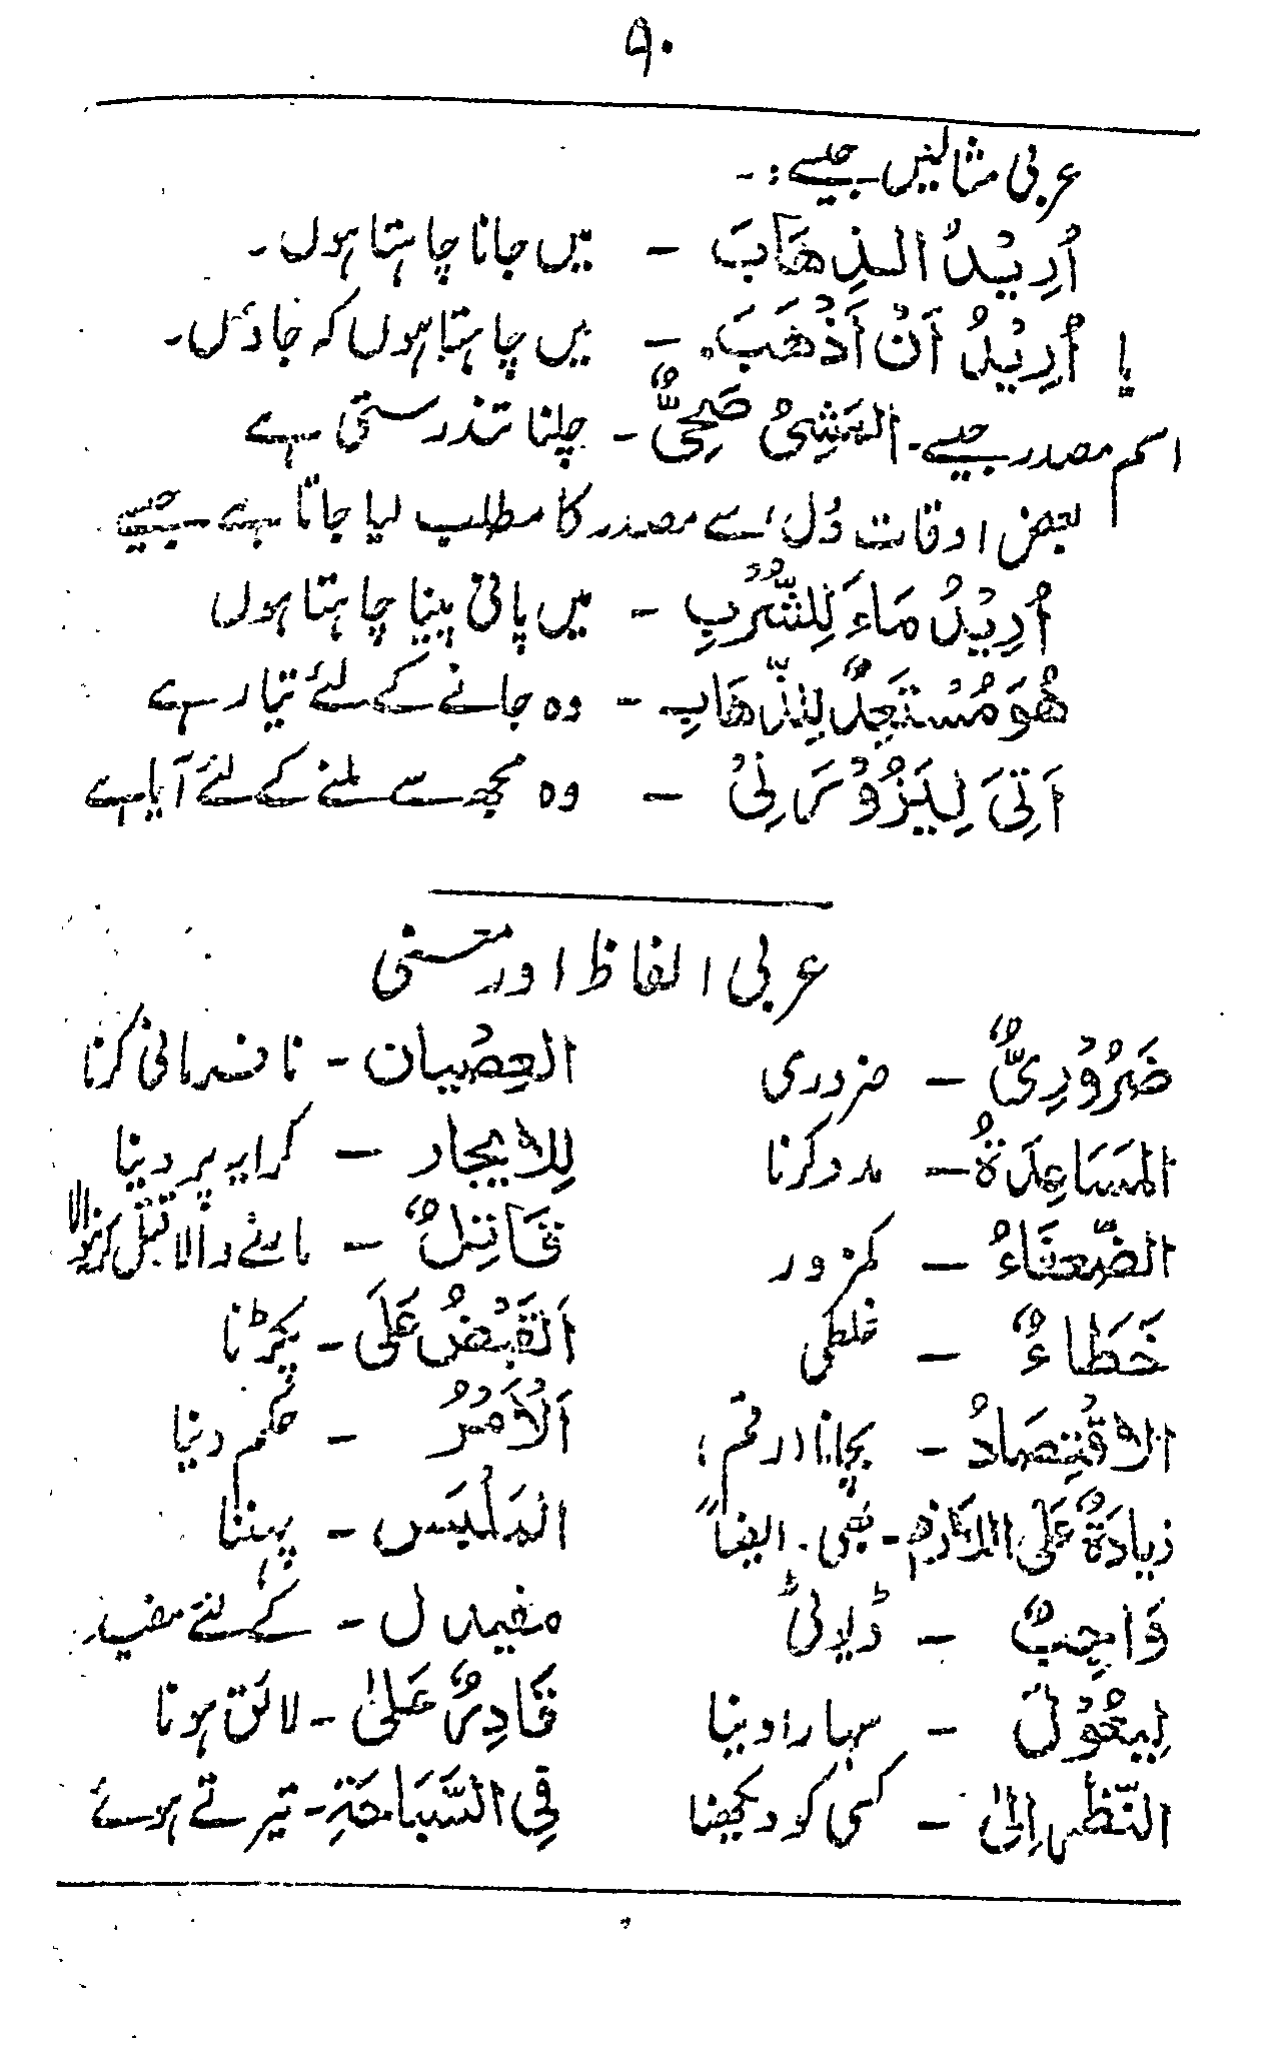 ۹۰
عربی مثالیں جیسے :-
اُرِیْدُ الذِهَابَ - میں جانا چاہتا ہوں۔
یا اُرِیْدُ اَنْ اَذْهَبَ - میں چاہتا ہوں کہ جاؤں۔
اسم مصدر جیسے۔ المَشِیُ صَحِیٌّ - چلنا تندرستی ہے
بعض اوقات دُل، سے مصدر کا مطلب لیا جاتا ہے۔ جیسے
اُرِیْدُ مَاءَ لِلشُّرْبِ - میں پانی پینا چاہتا ہوں
هُوَ مُسْتَعِدٌّ لِلذِّهَابِ - وہ جانے کے لئے تیار ہے
اَتِیَ لِیَزُوْرَنِیْ - وہ مجھ سے ملنے کے لئے آیا ہے
عربی الفاظ اور معنی
ضَرُوْرِیٌّ - ضروری
المَسَاعِدَةُ - مدد کرنا
الضّعفَاءُ - کمزور
خَطَاءٌ - غلطی
الاقْتِصَادُ - بچانا (رقم)
زیادَةٌ عَلَی اللَازِم - بھی. ایضاً
وَاجِبٌ - ڈیوٹی
لِیعُوْلَ - سہارا دینا
النَّظر اِلیٰ - کسی کو دیکھنا
العِصْیان - نافرمانی کرنا
لِلایجار - کرایہ پر دینا
قَاتِلٌ - مارنے والا قتل کرنیوالا
اَلقَبْضُ عَلَی - پکڑنا
اَلْاَمْرُ - حکم دینا
المَلْبَس - پہننا
مفید ل - کے لئے مفید
قَادِرٌ عَلیٰ - لائق ہونا
فِی السَّبَاحَةِ - تیرتے ہوئے